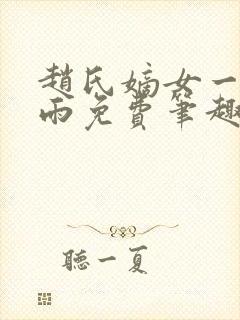 趙氏嫡女一
雨免費筆趣
聽一夏